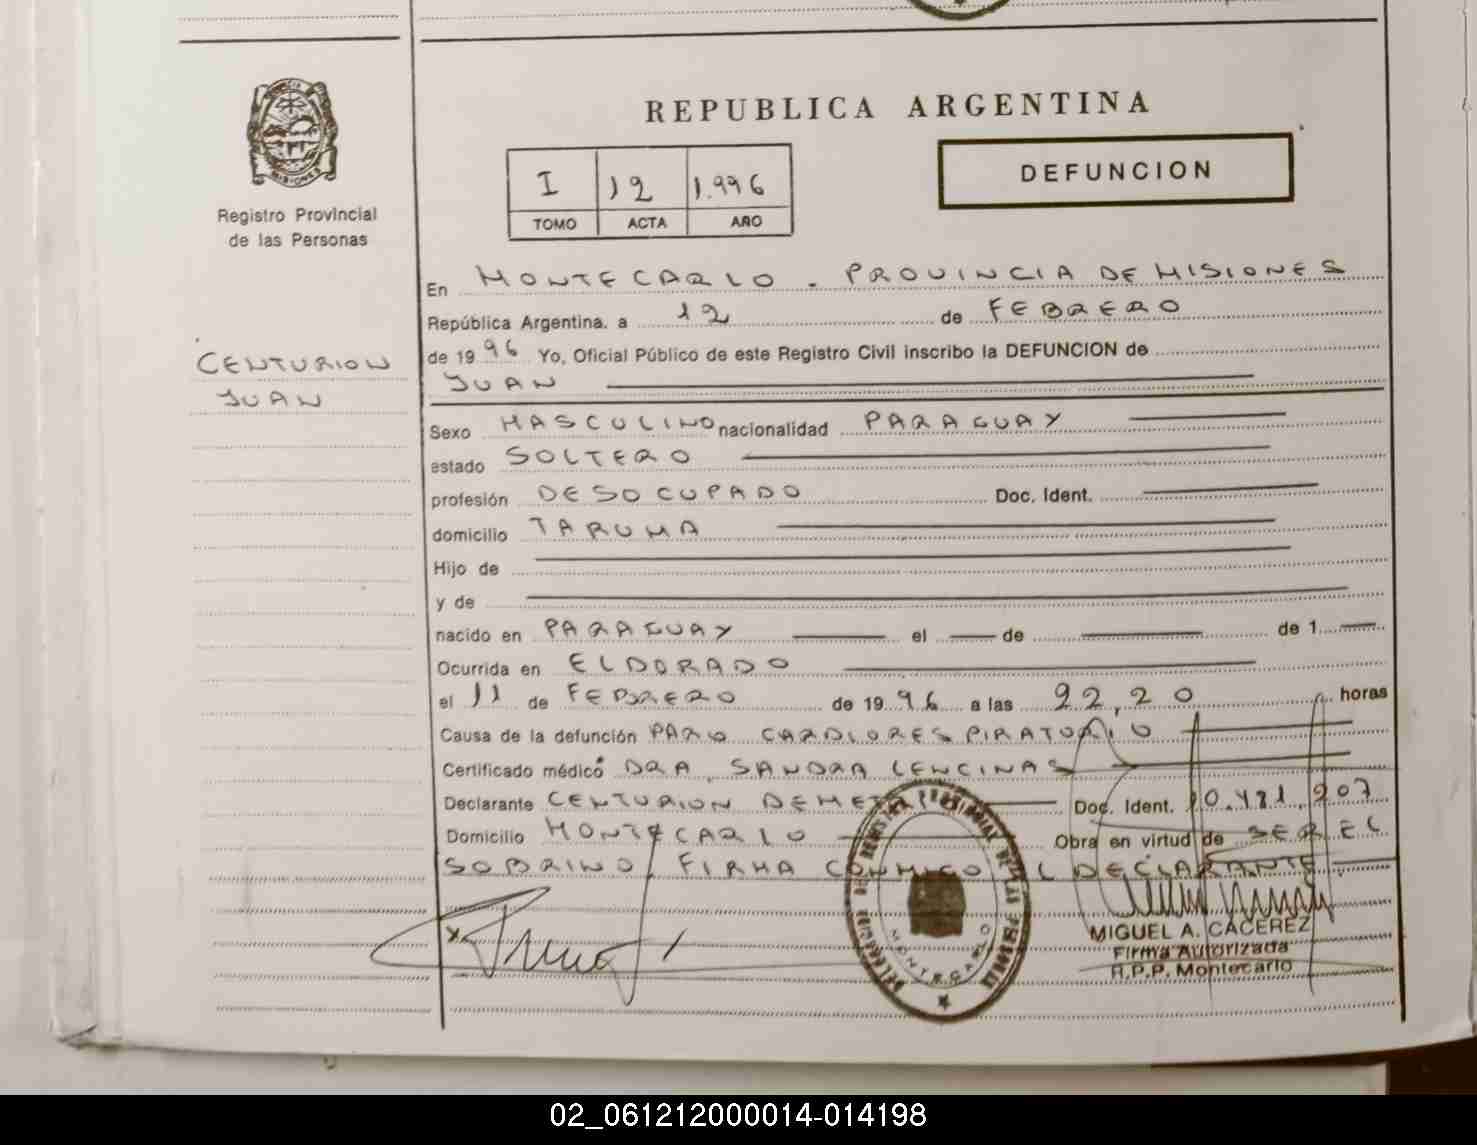 REPUBLICA ARGENTINA
MISIONES
Registro Provincial
de las Personas
I 12 1.996
TOMO ACTA AÑO
DEFUNCION
En MONTECARLO - PROVINCIA DE MISIONES
República Argentina, a 12 de FEBRERO
de 1996 Yo, Oficial Público de este Registro Civil inscribo la DEFUNCION de
CENTURION
JUAN
JUAN
Sexo MASCULINO nacionalidad PARAGUAY
estado SOLTERO
profesión DESOCUPADO Doc. Ident.
domicilio TARUMA
Hijo de
y de
nacido en PARAGUAY el de de 1
Ocurrida en ELDORADO
el 11 de FEBRERO de 1996 a las 22,20 horas
Causa de la defunción PARO CARDIORESPIRATORIO
Certificado médico DRA. SANDRA LENCINAS
Declarante CENTURION Doc. Ident.
Domicilio MONTECARLO Obra en virtud de SER EL
SOBRINO. FIRMA CONMIGO EL DECLARANTE
DELEGACION DEL REGISTRO PROVINCIAL DE LAS PERSONAS
MONTECARLO
MIGUEL A. CACEREZ
Firma Autorizada
R.P.P. Montecarlo
02_061212000014-014198